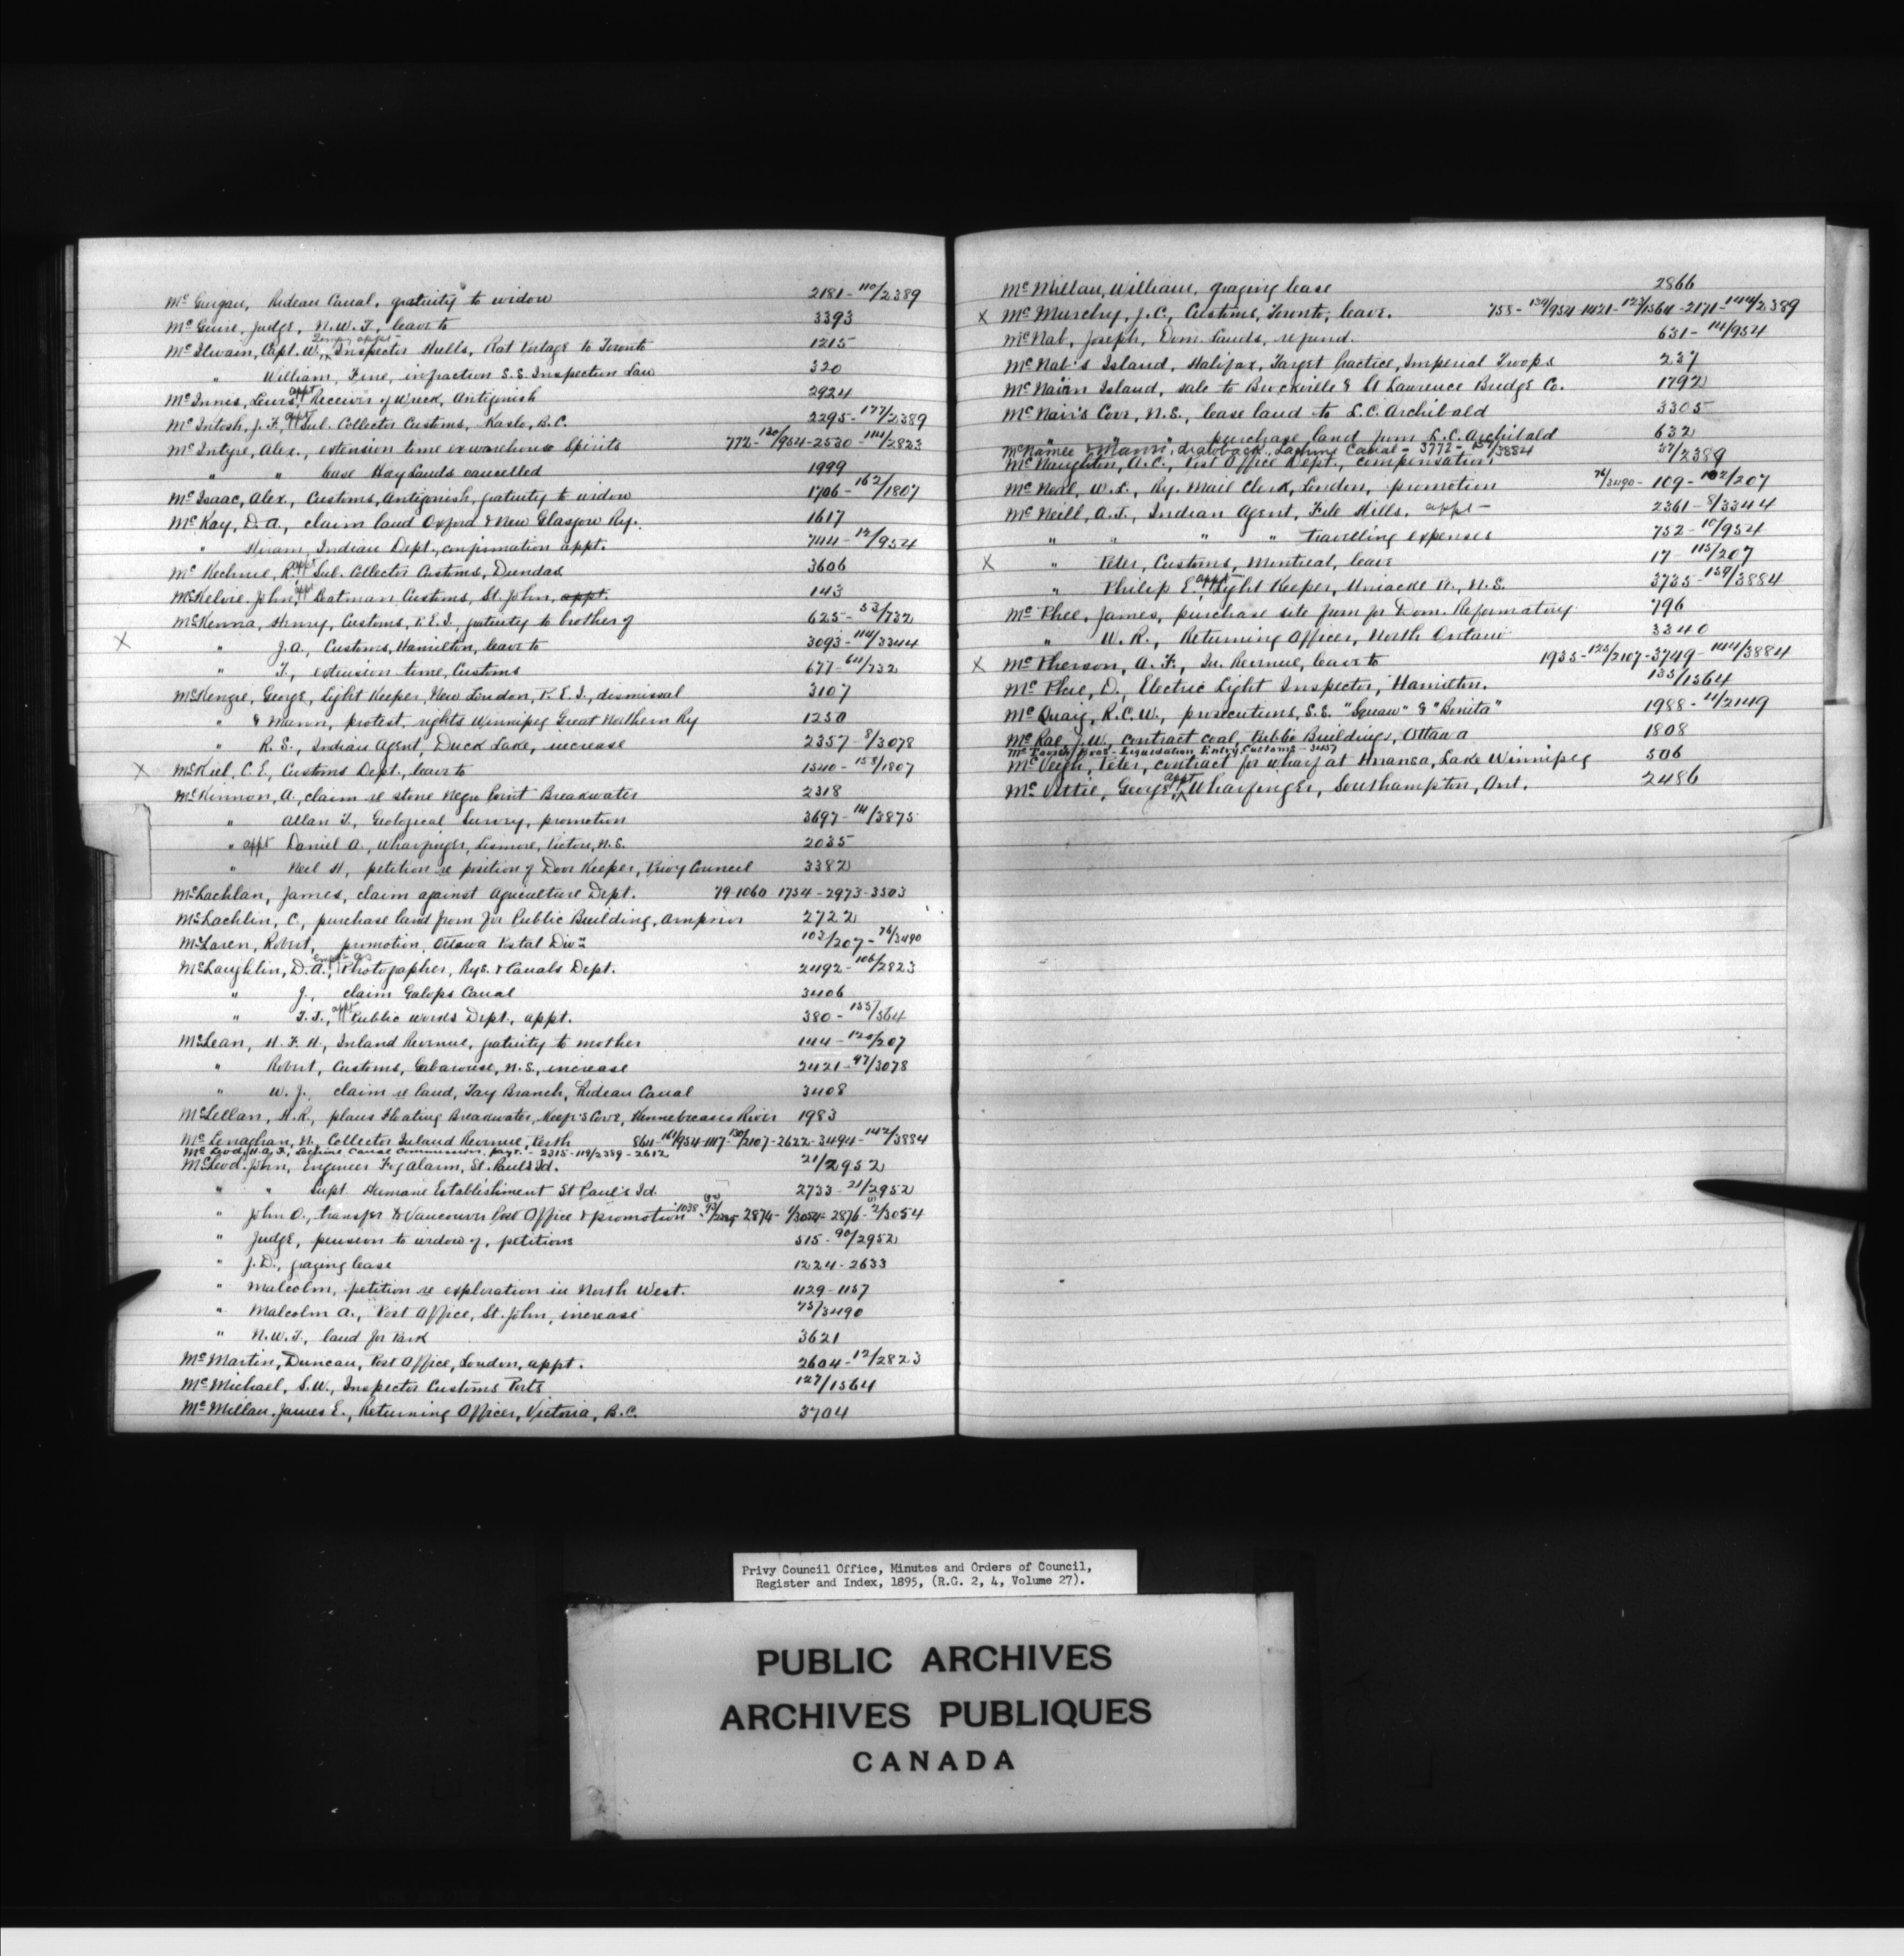 McGuigan, Rideau Canal, gratuity to widow 2181 - 110/2389
McGuire, Judge, N.W.T., leave to 3393
McIlwain, Capt. W., Tempy appt - Inspector Hulls, Rat Portage to Toronto 1215
" William, Fine, infraction S.S. Inspection Law 320
McInnis, Lewis, appt Receiver of Wreck, Antigonish 2924
McIntosh, J. F., appt Sub. Collector Customs, Kaslo, B.C. 2295 - 177/2389
McIntyre, Alex., extension time ex warehouse Spirits 772 - 120/954 - 2530 - 114/2823
" " lease Hay Lands cancelled 1999
McIsaac, Alex., Customs, Antigonish, gratuity to widow 1706 - 162/1807
McKay, D. A., claim land Oxford & New Glasgow Ry. 1617
" Hiram, Indian Dept., confirmation appt. 744 - 12/954
McKechnie, R. appt Sub. Collector Customs, Dundas 3606
McKelvie, John, appt Boatman Customs, St. John, appt. 143
McKenna, Henry, Customs, P.E.I., gratuity to brother of 625 - 53/732
X " J. A., Customs, Hamilton, leave to 3093 - 114/3344
" T., extension time, Customs 677 - 64/732
McKenzie, George, Light Keeper, New London, P.E.I., dismissal 3107
" & Mann, protest, rights Winnipeg Great Northern Ry 1230
" R. S., Indian Agent, Duck Lake, increase 2357 - 8/3078
X McKiel, C. E., Customs Dept., leave to 1540 - 158/1807
McKinnon, A., claim re stone Negro Point Breakwater 2318
" Allan T., Geological Survey, promotion 3697 - 14/3875
" appt Daniel A., Wharfinger, Lismore, Pictou, N.S. 2035
" Neil H., petition re position of Door Keeper, Privy Council 3382
McLachlan, James, claim against Agriculture Dept. 79-1060-1754-2973-3503
McLachlin, C., purchase land from for Public Building, Arnprior 2722
McLaren, Robert, promotion, Ottawa Postal Divn 103/207 - 76/3490
McLaughlin, D. A., empt as Photographer, Rys. & Canals Dept. 2492 - 106/2823
" J., claim Galops Canal 3406
" T. J., appt Public Works Dept., appt. 380 - 155/564
McLean, H. F. H., Inland Revenue, gratuity to mother 144 - 120/207
" Robert, Customs, Gabarouse, N.S., increase 2421 - 97/3078
" W. J., claim re land, Tay Branch, Rideau Canal 3408
McLellan, H. R., plans Floating Breakwater, Keep's Cove, Kennebecasis River 1983
McLenaghan, N., Collector Inland Revenue, Perth 864 - 161/954 - 1117 - 130/2107 - 2622 - 3494 - 142/3884
McLeod, H. A. F., Lachine Canal Commission, pays. - 2315 - 119/2389 - 2612
McLeod, John, Engineer Fog Alarm, St. Paul's Id. 21/2952
" " Supt. Humane Establishment St Paul's Id. 2733 - 21/2952
" John O., transfer to Vancouver Post Office & promotion 1038 - 2874 - 1/3054 - 2876 - 2/3054
" Judge, pension to widow of, petitions 515 - 90/2952
" J. D., grazing lease 1224 - 2633
" Malcolm, petition re exploration in North West. 1129 - 1157
" Malcolm A., Post Office, St. John, increase 75/3490
" N.W.T., land for Park 3621
McMartin, Duncan, Post Office, London, appt. 2604 - 12/2823
McMichael, S. W., Inspector Customs Ports 127/1564
McMillan, James E., Returning Officer, Victoria, B.C. 3704
McMillan, William, grazing lease 2866
X McMurchy, J. C., Customs, Toronto, leave. 758 - 139/954 - 1421 - 123/1564 - 2171 - 144/2389
McNab, Joseph, Dom. Lands, refund. 631 - 14/954
McNab's Island, Halifax, Target Practice, Imperial Troops 237
McNair Island, sale to Brockville & St Lawrence Bridge Co. 1792
McNair's Cove, N.S., lease land to L. C. Archibald 3305
" " " purchase land from L. C. Archibald 632
McNamee & Mann, drawback, Lachine Canal - 3772 - 157/3884
McNaughton, A. C., Post Office Dept., compensation 37/2389
McNeil, W. L., Ry. Mail Clerk, London, promotion 76/3490 - 109 - 102/207
McNeill, A. J., Indian Agent, File Hills, appt - 2361 - 8/3344
" " " " travelling expenses 752 - 10/954
X " Peter, Customs, Montreal, leave 17 - 115/207
" Philip E., appt Light Keeper, Uniacke Pt., N.S. 3735 - 159/3884
McPhee, James, purchase site from for Dom. Reformatory 796
" W. R., Returning Officer, North Ontario 3340
X McPherson, A. F., In. Revenue, leave to 1935 - 125/2107 - 3749 - 144/3884
McPhie, D., Electric Light Inspector, Hamilton. 135/1564
McQuaig, R.C.W., prosecutions, S.S. "Squaw" & "Bonita" 1988 - 11/2149
McRae, J. W., contract coal, Public Buildings, Ottawa 1808
McTavish Bros - Liquidation Entry, Customs - 3457
McVeigh, Peter, contract for wharf at Hnansa, Lake Winnipeg 506
McVittie, George, appt Wharfinger, Southampton, Ont. 2486
Privy Council Office, Minutes and Orders of Council,
Register and Index, 1895, (R.G. 2, 4, Volume 27).
PUBLIC ARCHIVES
ARCHIVES PUBLIQUES
CANADA